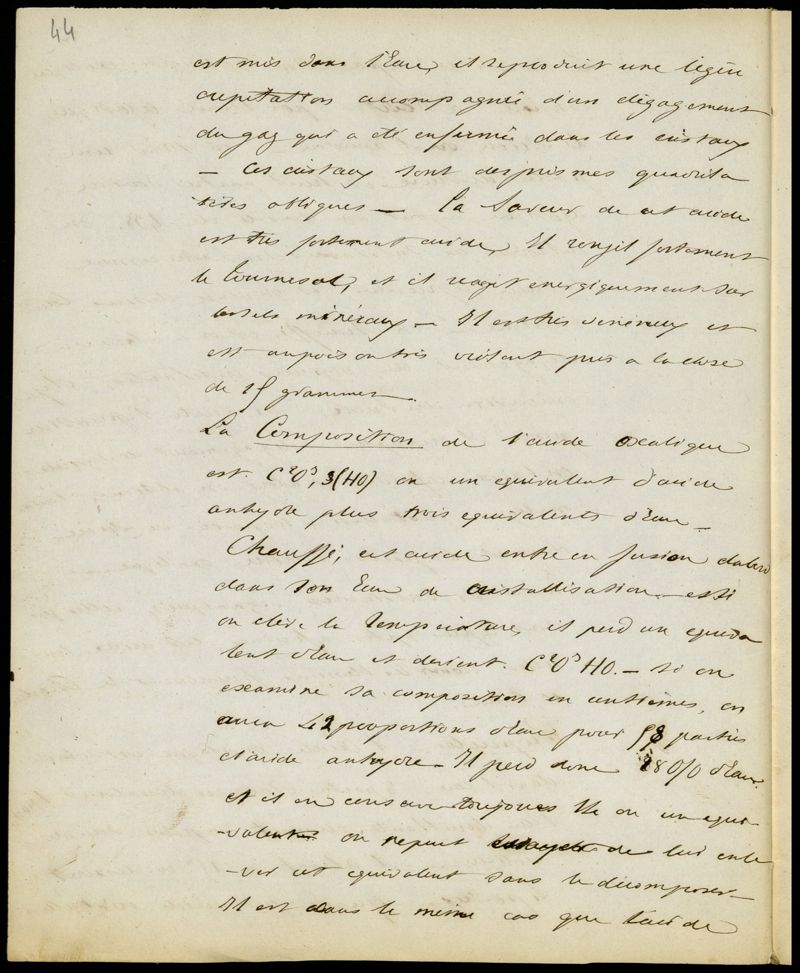 44
est mis dans l'Eau, il reproduit une légère
crepitation accompagnée d'un dégagement
du gaz qui a été enfermé dans les cristaux
— Ces cristaux sont des prismes quadrila
tères obliques — La Saveur de cet acide
est très fortement acide, Il rougit fortement
le tournesol, et il réagit energiquement sur
les sels minéraux — Il est très vénéneux et
est un poison très violent pris a la dose
de 15 grammes —
La Composition de l'acide Oxalique
est. C²O³, 3(HO) ou un equivalent d'acide
anhydre plus trois equivalents d'Eau —
Chauffé, cet acide entre en fusion dabord
dans son Eau de cristallisation — et si
on élève la Température, il perd un equiva
lent d'Eau et devient. C²O³ HO. — si on
examine sa composition en centièmes, on
aura 42 proportions d'Eau pour 58 parties
d'acide anhydre — Il perd donc 28 0/0 d'Eau.
et il en conserve toujours 14 ou un equi-
-valent on ne peut de lui enle
-ver cet equivalent sans le décomposer —
Il est dans le même cas que l'acide